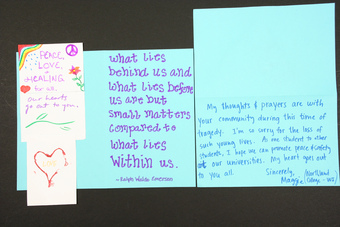 PEACE,
LOVE,
+
HEALING
for us.
Our hearts
go out to you.
what lies
behind us and
what lies before
us are but
small matters
compared to
what lies
Within us.
- Ralph Waldo Emerson
My thoughts & prayers are with
your community during this time of
tragedy. I'm so sorry for the loss of
such young lives. As one student to other
students, I hope we can promote peace & safety
at our universities. My heart goes out
to you all. Sincerely,
Maggie (Northland
College - WI)